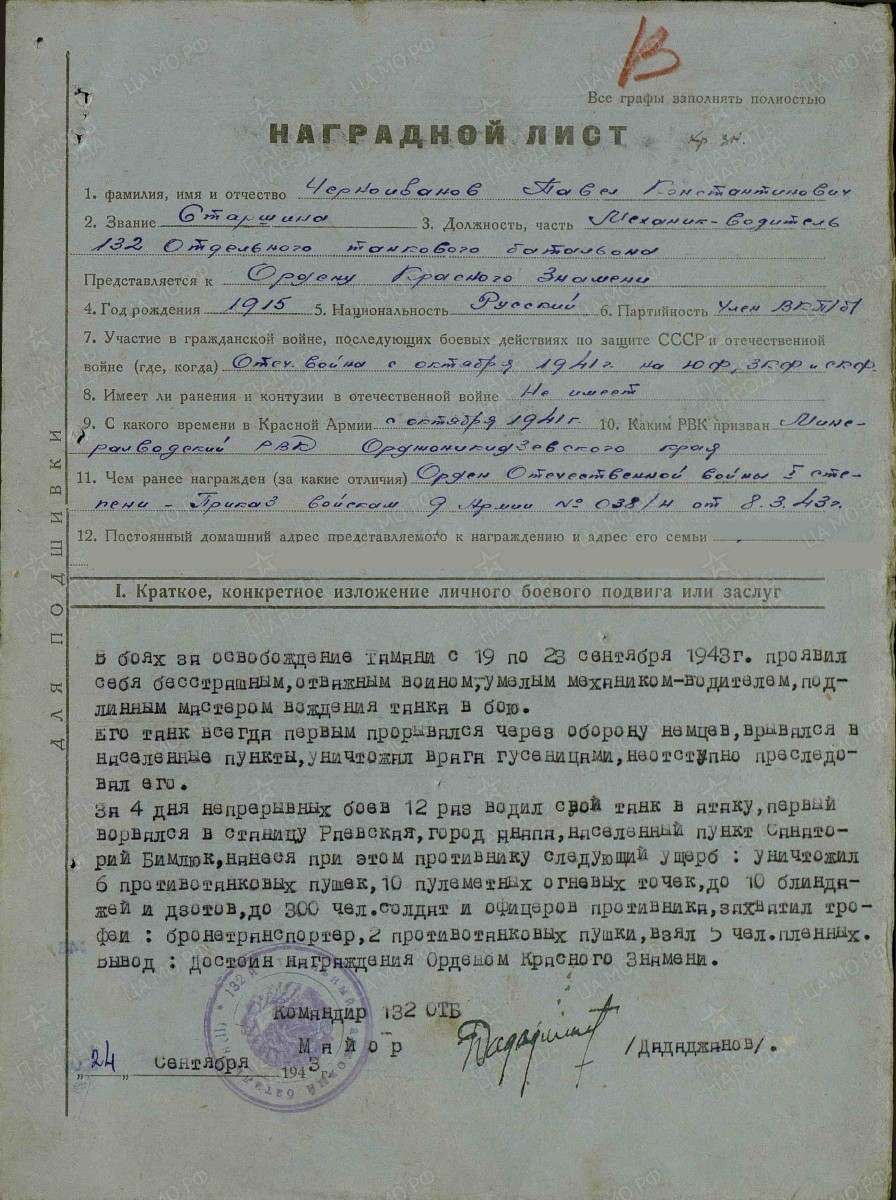 В
Все графы заполнять полностью
НАГРАДНОЙ ЛИСТ Кр. Зн.
1. фамилия, имя и отчество Черноиванов Павел Константинович
2. Звание Старшина 3. Должность, часть Механик-водитель
132 Отдельного танкового батальона
Представляется к Ордену Красного Знамени
4. Год рождения 1915 5. Национальность Русский 6. Партийность Член ВКП/б/
7. Участие в гражданской войне, последующих боевых действиях по защите СССР и отечественной
войне (где, когда) Отеч. война с октября 1941 г. на ЮФ, ЗКФ и СКФ.
8. Имеет ли ранения и контузии в отечественной войне Не имеет
9. С какого времени в Красной Армии с октября 1941 г. 10. Каким РВК призван Мине-
ралводский РВК Орджоникидзевского края
11. Чем ранее награжден (за какие отличия) Орден Отечественной войны I сте-
пени - Приказ войскам 9 Армии № 038/н от 8.3.43 г.
12. Постоянный домашний адрес представляемого к награждению и адрес его семьи
I. Краткое, конкретное изложение личного боевого подвига или заслуг
В боях за освобождение Тамани с 19 по 23 сентября 1943г. проявил
себя бесстрашным,отважным воином,умелым механиком-водителем,под-
линным мастером вождения танка в бою.
Его танк всегда первым прорывался через оборону немцев,врывался в
населенные пункты,уничтожал врага гусеницами,неотступно преследо-
вал его.
За 4 дня непрерывных боев 12 раз водил свой танк в атаку,первый
ворвался в станицу Раевская,город Анапа,населенный пункт Санато-
рий Бимлюк,нанеся при этом противнику следующий ущерб : уничтожил
6 противотанковых пушек,10 пулеметных огневых точек,до 10 блинда-
жей и дзотов,до 300 чел.солдат и офицеров противника,захватил тро-
феи : бронетранспортер,2 противотанковых пушки,взял 5 чел.пленных.
Вывод : Достоин награждения Орденом Красного Знамени.
Командир 132 ОТБ
Майор /Дададжанов/.
„24„ Сентября 1943 г.
ДЛЯ ПОДШИВКИ